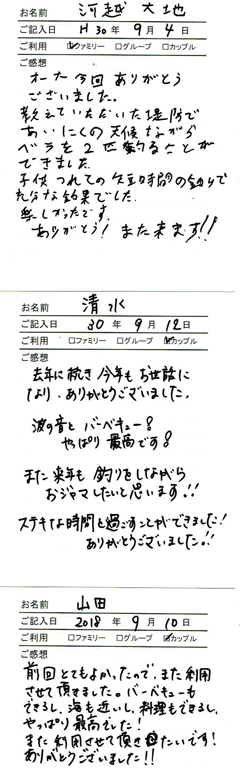 お名前 河越 大地
ご記入日 H30年 9月 4日
ご利用 ☑ファミリー □グループ □カップル
ご感想
オーナー今回ありがとう
ございました。
教えていただいた堤防で
あいにくの天候ながら
ベラを2匹釣ることが
できました
子供つれての短時間の釣りで
充分な釣果でした。
楽しかったです。
ありがとう！また来ます!!
お名前 清水
ご記入日 30年 9月 12日
ご利用 □ファミリー □グループ ☑カップル
ご感想
去年に続き今年もお世話に
なり、ありがとうございました。
波の音とバーベキュー！
やっぱり最高です！
また来年も釣りをしながら
おジャマしたいと思います!!
ステキな時間を過ごすことができました！
ありがとうございました!!
お名前 山田
ご記入日 2018年 9月 10日
ご利用 □ファミリー □グループ ☑カップル
ご感想
前回とてもよかったので、また利用
させて頂きました。バーベキューも
できるし、海も近いし、料理もできるし、
やっぱり最高でした！
また利用させて頂きたいです！
ありがとうございました!!